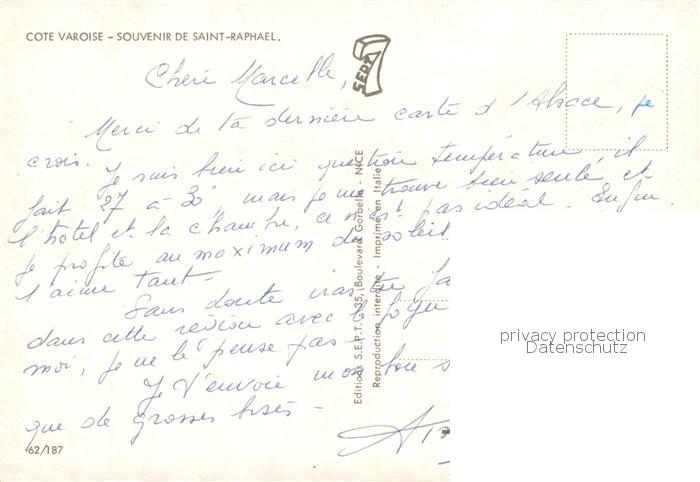 COTE VAROISE – SOUVENIR DE SAINT-RAPHAEL.
SEPT
Chère Marcelle,
Merci de ta dernière carte d'Alsace, je
crois. Je suis bien ici question température, il
fait 27 à 30° mais je me trouve bien seule et
l'hôtel et la chambre, ce n'est pas idéal. Enfin
je profite au maximum du soleil
l'aime tant.
Sans doute iras-tu
dans cette région avec
moi, je ne le pense pas
Je t'envoie mon
que de grosses bises –
62/187
Editions S.E.P.T. - 35, Boulevard Gorbella - NICE
Reproduction interdite - Imprimé en Italie
privacy protection
Datenschutz